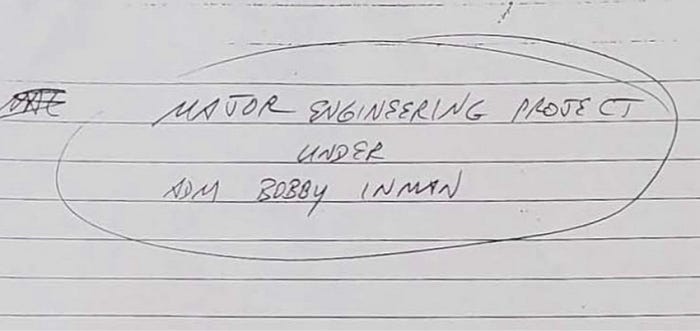 MAJOR ENGINEERING PROJECT
UNDER
ADM BOBBY INMAN